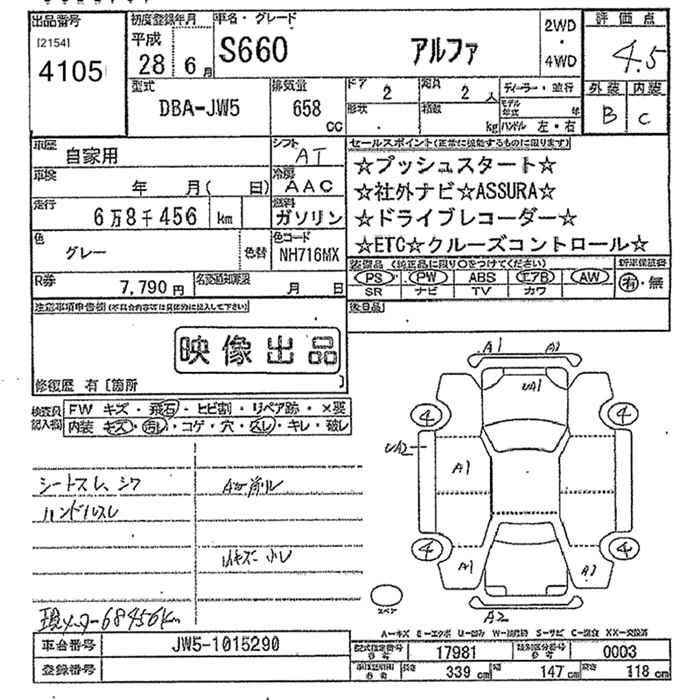 出品番号
[2154]
4105
初度登録年月
平成
28 6月
車名・グレード
S660 アルファ
2WD
・
4WD
評価点
4.5
外装 内装
B C
型式
DBA-JW5
排気量
658 cc
ドア 2
定員 2 人
形状
積数 kg
ディーラー・並行
モデル年式 年
ハンドル 左・右
車歴
自家用
シフト
AT
セールスポイント(正常に機能するものに限ります)
☆プッシュスタート☆
☆社外ナビ☆ASSURA☆
☆ドライブレコーダー☆
☆ETC☆クルーズコントロール☆
車検
年 月( 日)
冷房
AAC
走行
6万8千456 km
燃料
ガソリン
色
グレー
色替
色コード
NH716MX
装備品(純正品に限り○をつけてください)
PS PW ABS エアB AW
SR ナビ TV カワ
新車保証書
有・無
R券
7,790円
名変期限
月 日
後日品
注意事項申告欄(不具合内容等は具体的に記入して下さい)
映像出品
修復歴 有〔箇所 〕
検査員記入欄
FW キズ・飛石・ヒビ割・リペア跡・×要
内装 キズ・汚れ・コゲ・穴・スレ・キレ・破レ
シートスレ、シワ
ハンドルスレ
小レ
現メーター68456km
A1 A1
UA1
4 4
UA2
A1
4 4
A1 A1
A2
スペア
A-キズ E-エクボ U-凹み W-波修跡 S-サビ C-腐食 XX-交換済
車台番号
JW5-1015290
登録番号
型式指定番号
参考
17981
類別区分番号
参考
0003
車検証記載
参考
長さ 339 cm
幅 147 cm
高さ 118 cm